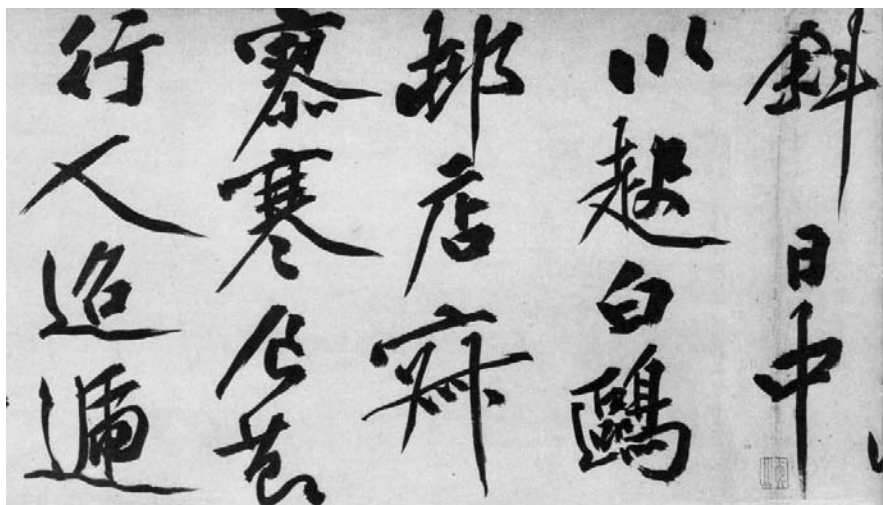 斜日中
川起白鷗
邨店寂
寥寒食
行人迢遞